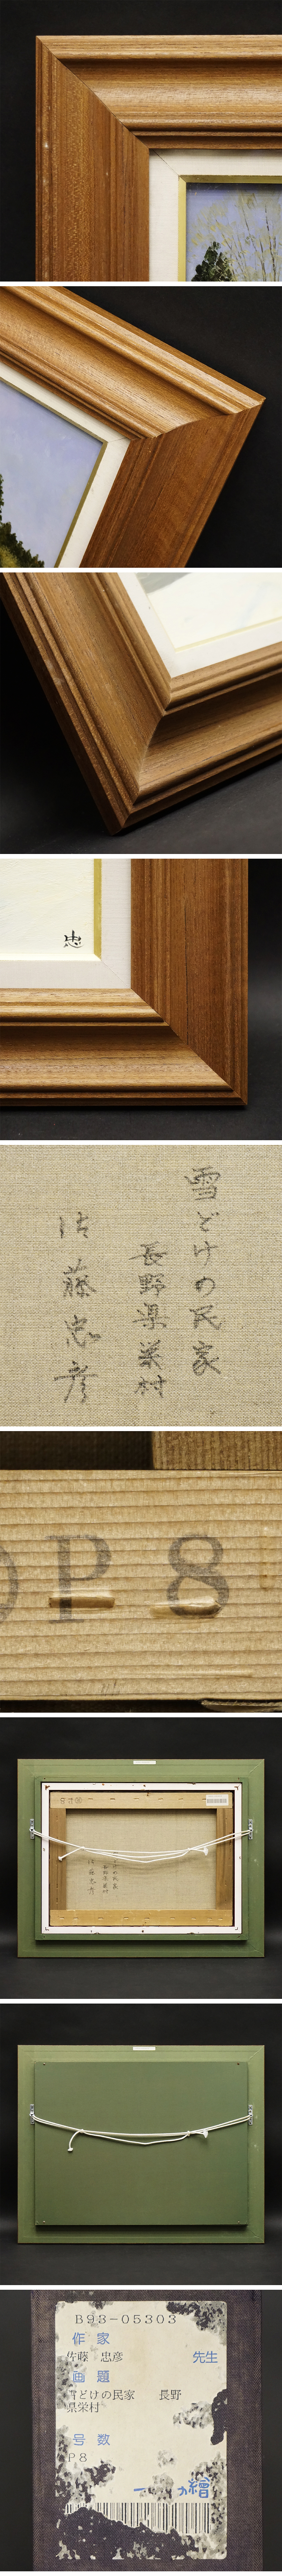 忠
雪どけの民家
長野県栄村
佐藤忠彦
P 8
B93-05303
作家
佐藤 忠彦
先生
画題
雪どけの民家 長野
県栄村
号数
P8
繪